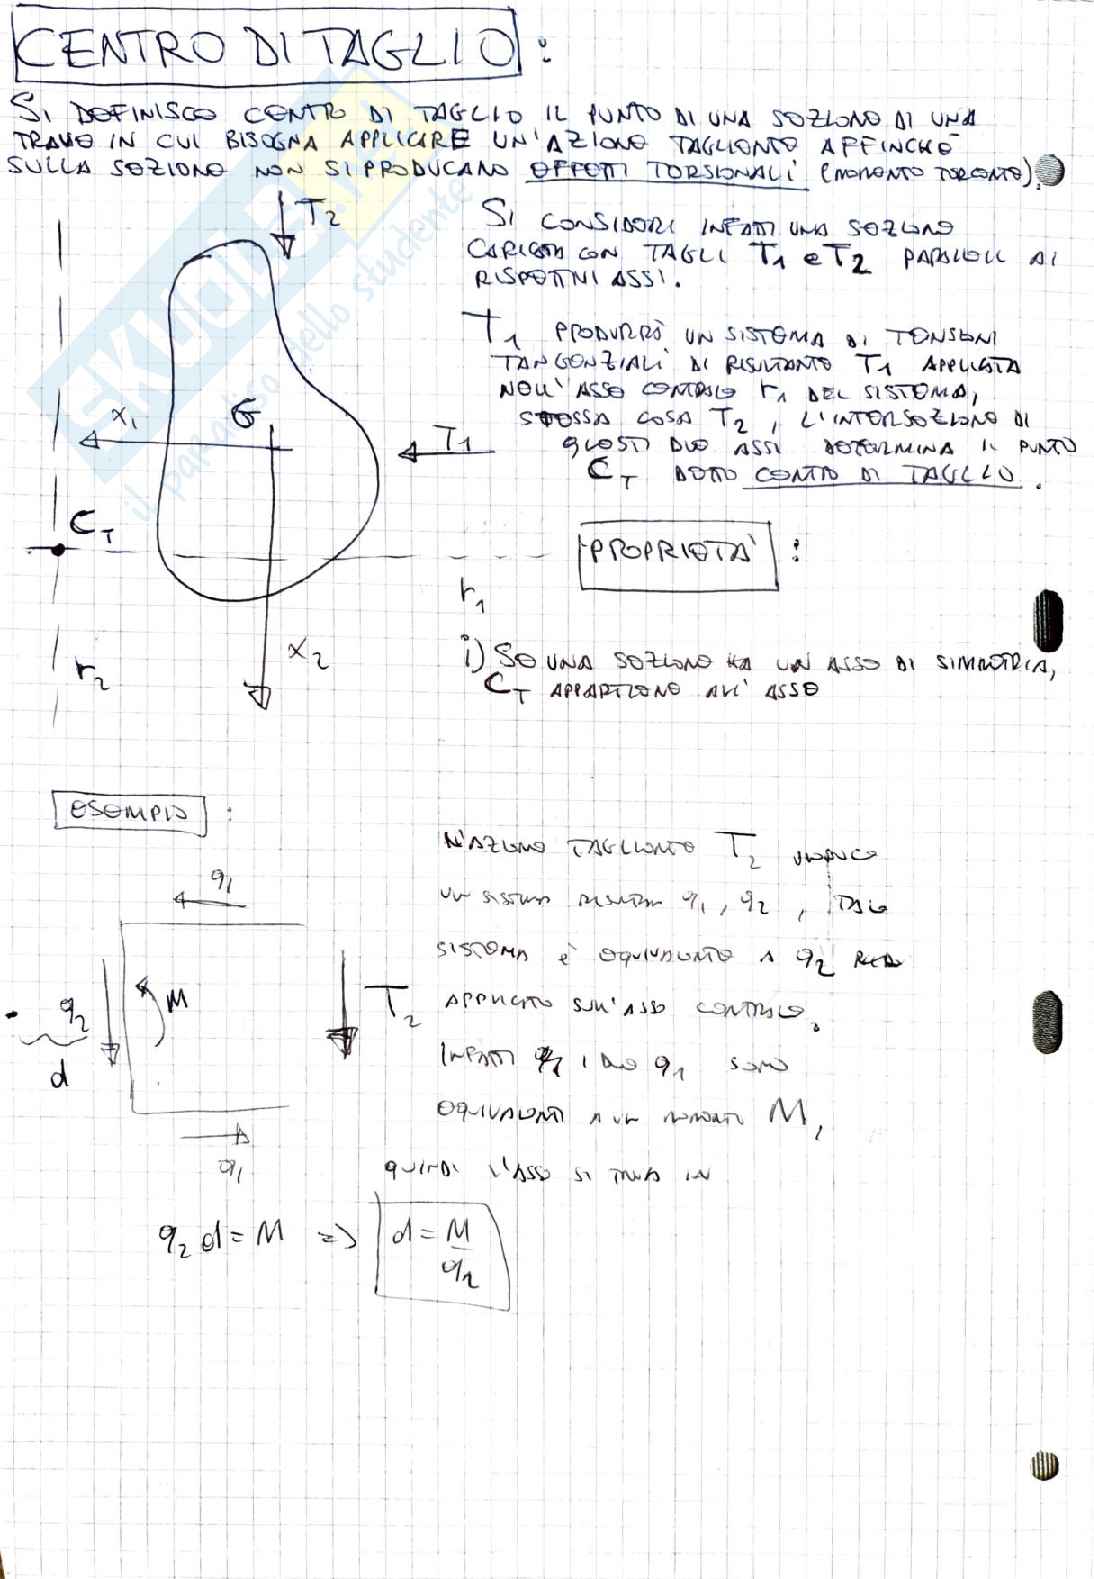 CENTRO DI TAGLIO :
SI DEFINISCE CENTRO DI TAGLIO IL PUNTO DI UNA SEZIONE DI UNA
TRAVE IN CUI BISOGNA APPLICARE UN'AZIONE TAGLIENTE AFFINCHÉ
SULLA SEZIONE NON SI PRODUCANO EFFETTI TORSIONALI (MOMENTO TORCENTE).
T2
SI CONSIDERI INFATTI UNA SEZIONE
CARICATA CON TAGLI T1 e T2 PARALLELI AI
RISPETTIVI ASSI.
T1 PRODURRÀ UN SISTEMA DI TENSIONI
TANGENZIALI DI RISULTANTE T1 APPLICATA
NELL'ASSE CENTRALE r1 DEL SISTEMA,
STESSA COSA T2, L'INTERSEZIONE DI
QUESTI DUE ASSI DETERMINA IL PUNTO
CT DETTO CENTRO DI TAGLIO.
x1
G
T1
CT
r1
x2
r2
PROPRIETÀ :
i) SE UNA SEZIONE HA UN ASSE DI SIMMETRIA,
CT APPARTIENE ALL'ASSE
ESEMPIO :
q1
q2
d
M
T2
q1
L'AZIONE TAGLIENTE T2
UN SISTEMA q1, q2, TALE
SISTEMA È EQUIVALENTE A q2
APPLICATO SULL'ASSE CENTRALE.
INFATTI I DUE q1 SONO
EQUIVALENTI A UN MOMENTO M,
QUINDI L'ASSE SI TROVA IN
q2 d = M => d = M/q2
SKUOLA.net
il paradiso dello studente